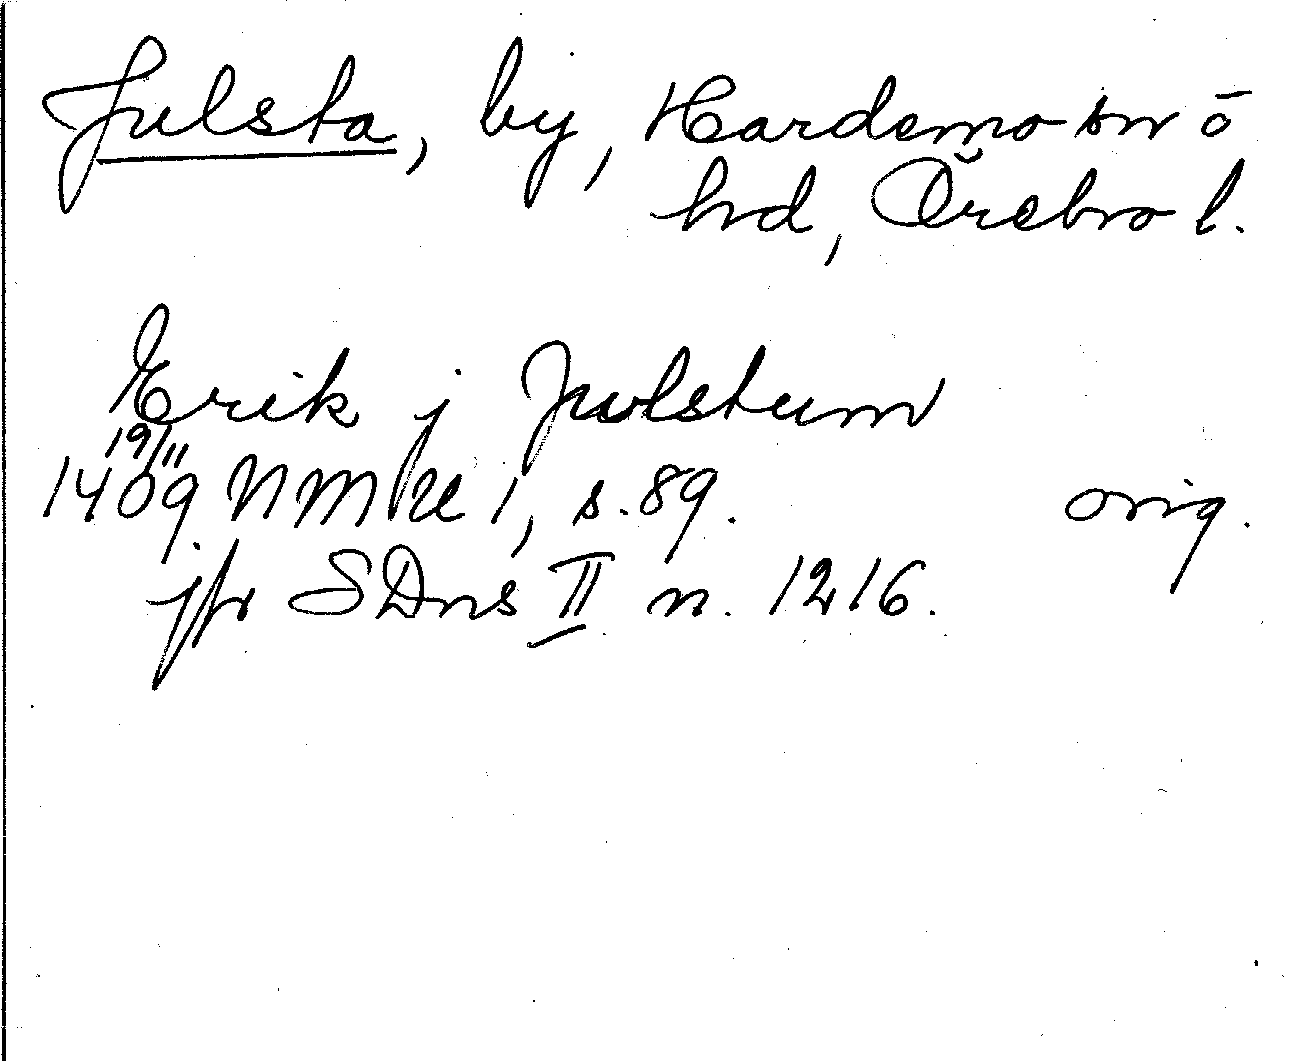 Julsta, by, Hardemo sn o
hd, Örebro l.
Erik j Julstum
19/11
1409 NMU 1, s. 89. orig.
jfr SDns II n. 1216.